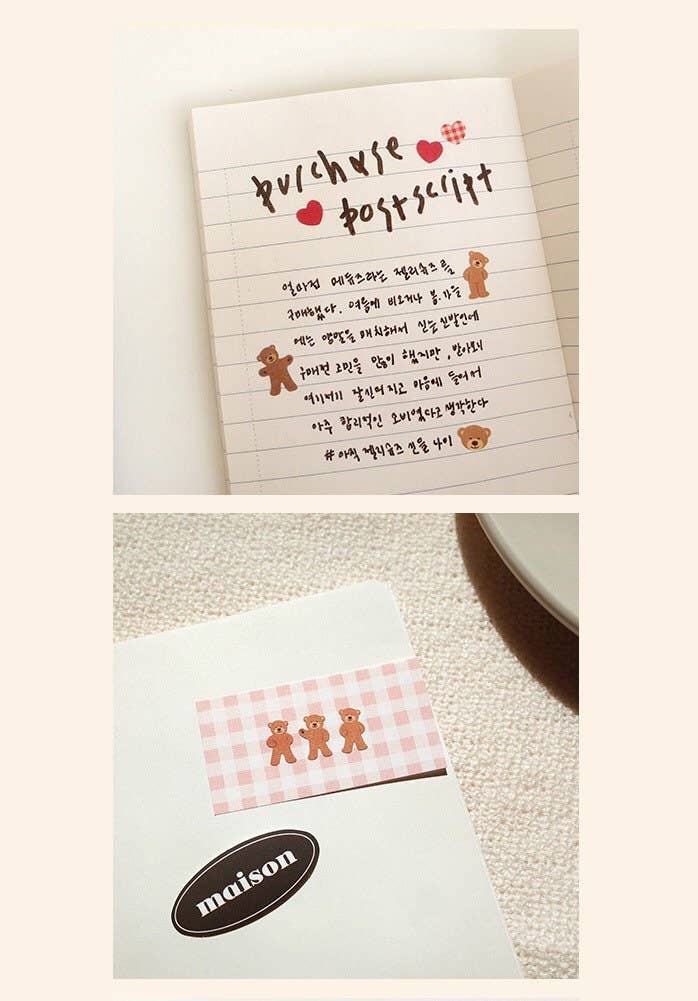 purchase
postscript
얼마전 메듀즈라는 젤리슈즈를
구매했다. 여름에 비오거나 봄.가을
에는 양말을 매치해서 신는 신발인데
구매전 고민을 많이 했지만, 받아보니
여기저기 잘 신어지고 마음에 들어서
아주 합리적인 소비였다고 생각한다
#아직 젤리슈즈 신을 나이
maison